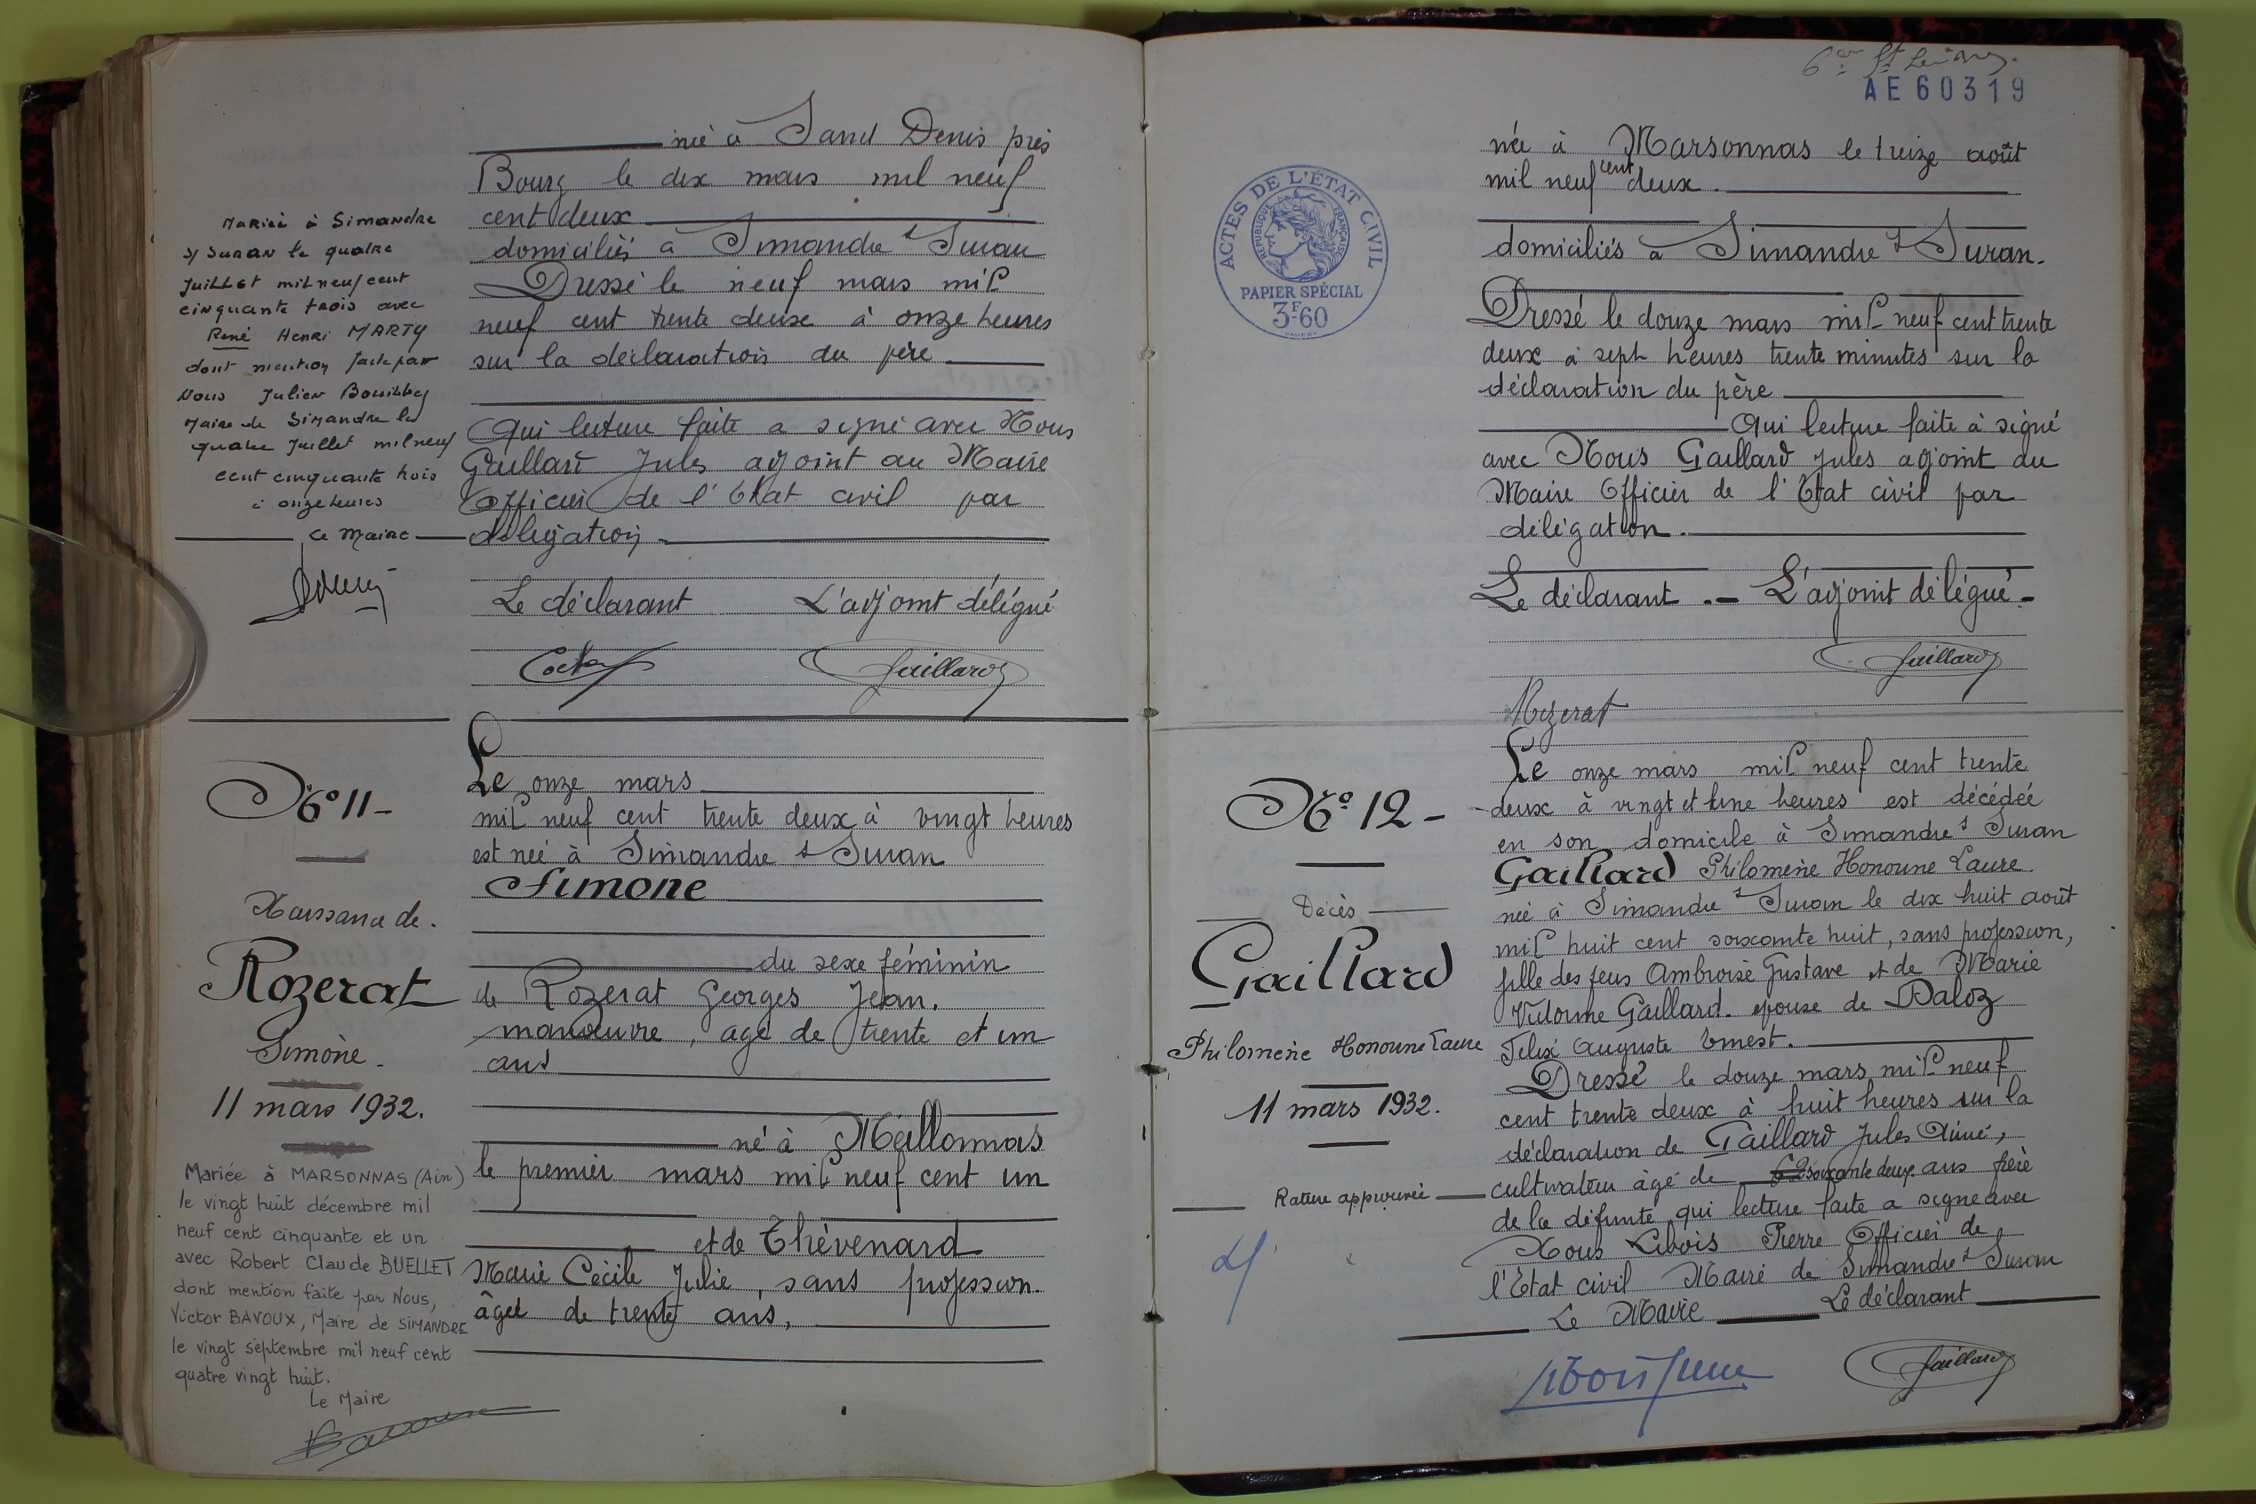 née à Saint Denis près
Bourg le dix mars mil neuf
cent deux
domiciliés à Simandre s/ Suran
Dressé le neuf mars mil
neuf cent trente deux à onze heures
sur la déclaration du père
Qui lecture faite a signé avec Nous
Gaillard Jules adjoint au Maire
Officier de l'Etat civil par
délégation
Le déclarant L'adjoint délégué
Gaillard
Mariée à Simandre
s/ Suran le quatre
Juillet mil neuf cent
cinquante trois avec
René Henri MARTY
dont mention faite par
Nous Julien
Maire de Simandre le
quatre Juillet mil neuf
cent cinquante trois
à onze heures
Le Maire
N° 11 -
Naissance de.
Rozerat
Simone -
11 mars 1932.
Mariée à MARSONNAS (Ain)
le vingt huit décembre mil
neuf cent cinquante et un
avec Robert Claude BUELLET
dont mention faite par Nous,
Victor BAVOUX, Maire de SIMANDRE
le vingt septembre mil neuf cent
quatre vingt huit.
Le Maire
Bavoux
Le onze mars
mil neuf cent trente deux à vingt heures
est née à Simandre s/ Suran
Simone
du sexe féminin
de Rozerat Georges Jean.
manœuvre, agé de trente et un
ans
né à Meillonnas
le premier mars mil neuf cent un
et de Thévenard
Marie Cécile Julie, sans profession.
âgée de trente ans,
AE 60319
ACTES DE L'ÉTAT CIVIL
RÉPUBLIQUE FRANÇAISE
PAPIER SPÉCIAL
3F-60
née à Marsonnas le treize août
mil neuf cent deux.
domiciliés à Simandre s/ Suran.
Dressé le douze mars mil neuf cent trente
deux à sept heures trente minutes sur la
déclaration du père
Qui lecture faite à signé
avec Nous Gaillard Jules adjoint au
Maire Officier de l'Etat civil par
délégation.
Le déclarant. - L'adjoint délégué -
Gaillard
Rozerat
N° 12 -
Décès
Gaillard
Philomène Honorine Laure
11 mars 1932.
Rature approuvée
Le onze mars mil neuf cent trente
deux à vingt et une heures est décédée
en son domicile à Simandre s/ Suran
Gaillard Philomène Honorine Laure.
née à Simandre s/ Suran le dix huit août
mil huit cent soixante huit, sans profession,
fille des feus Ambroise Gustave et de Marie
Victorine Gaillard. epouse de Daloz
Felix Auguste Ernest.
Dressé le douze mars mil neuf
cent trente deux à huit heures sur la
déclaration de Gaillard Jules Aimé,
cultivateur âgé de 62 soixante deux ans frère
de la défunte, qui lecture faite a signé avec
Nous Libois Pierre Officier de
l'Etat civil Maire de Simandre s/ Suran
Le Maire Le déclarant
Gaillard